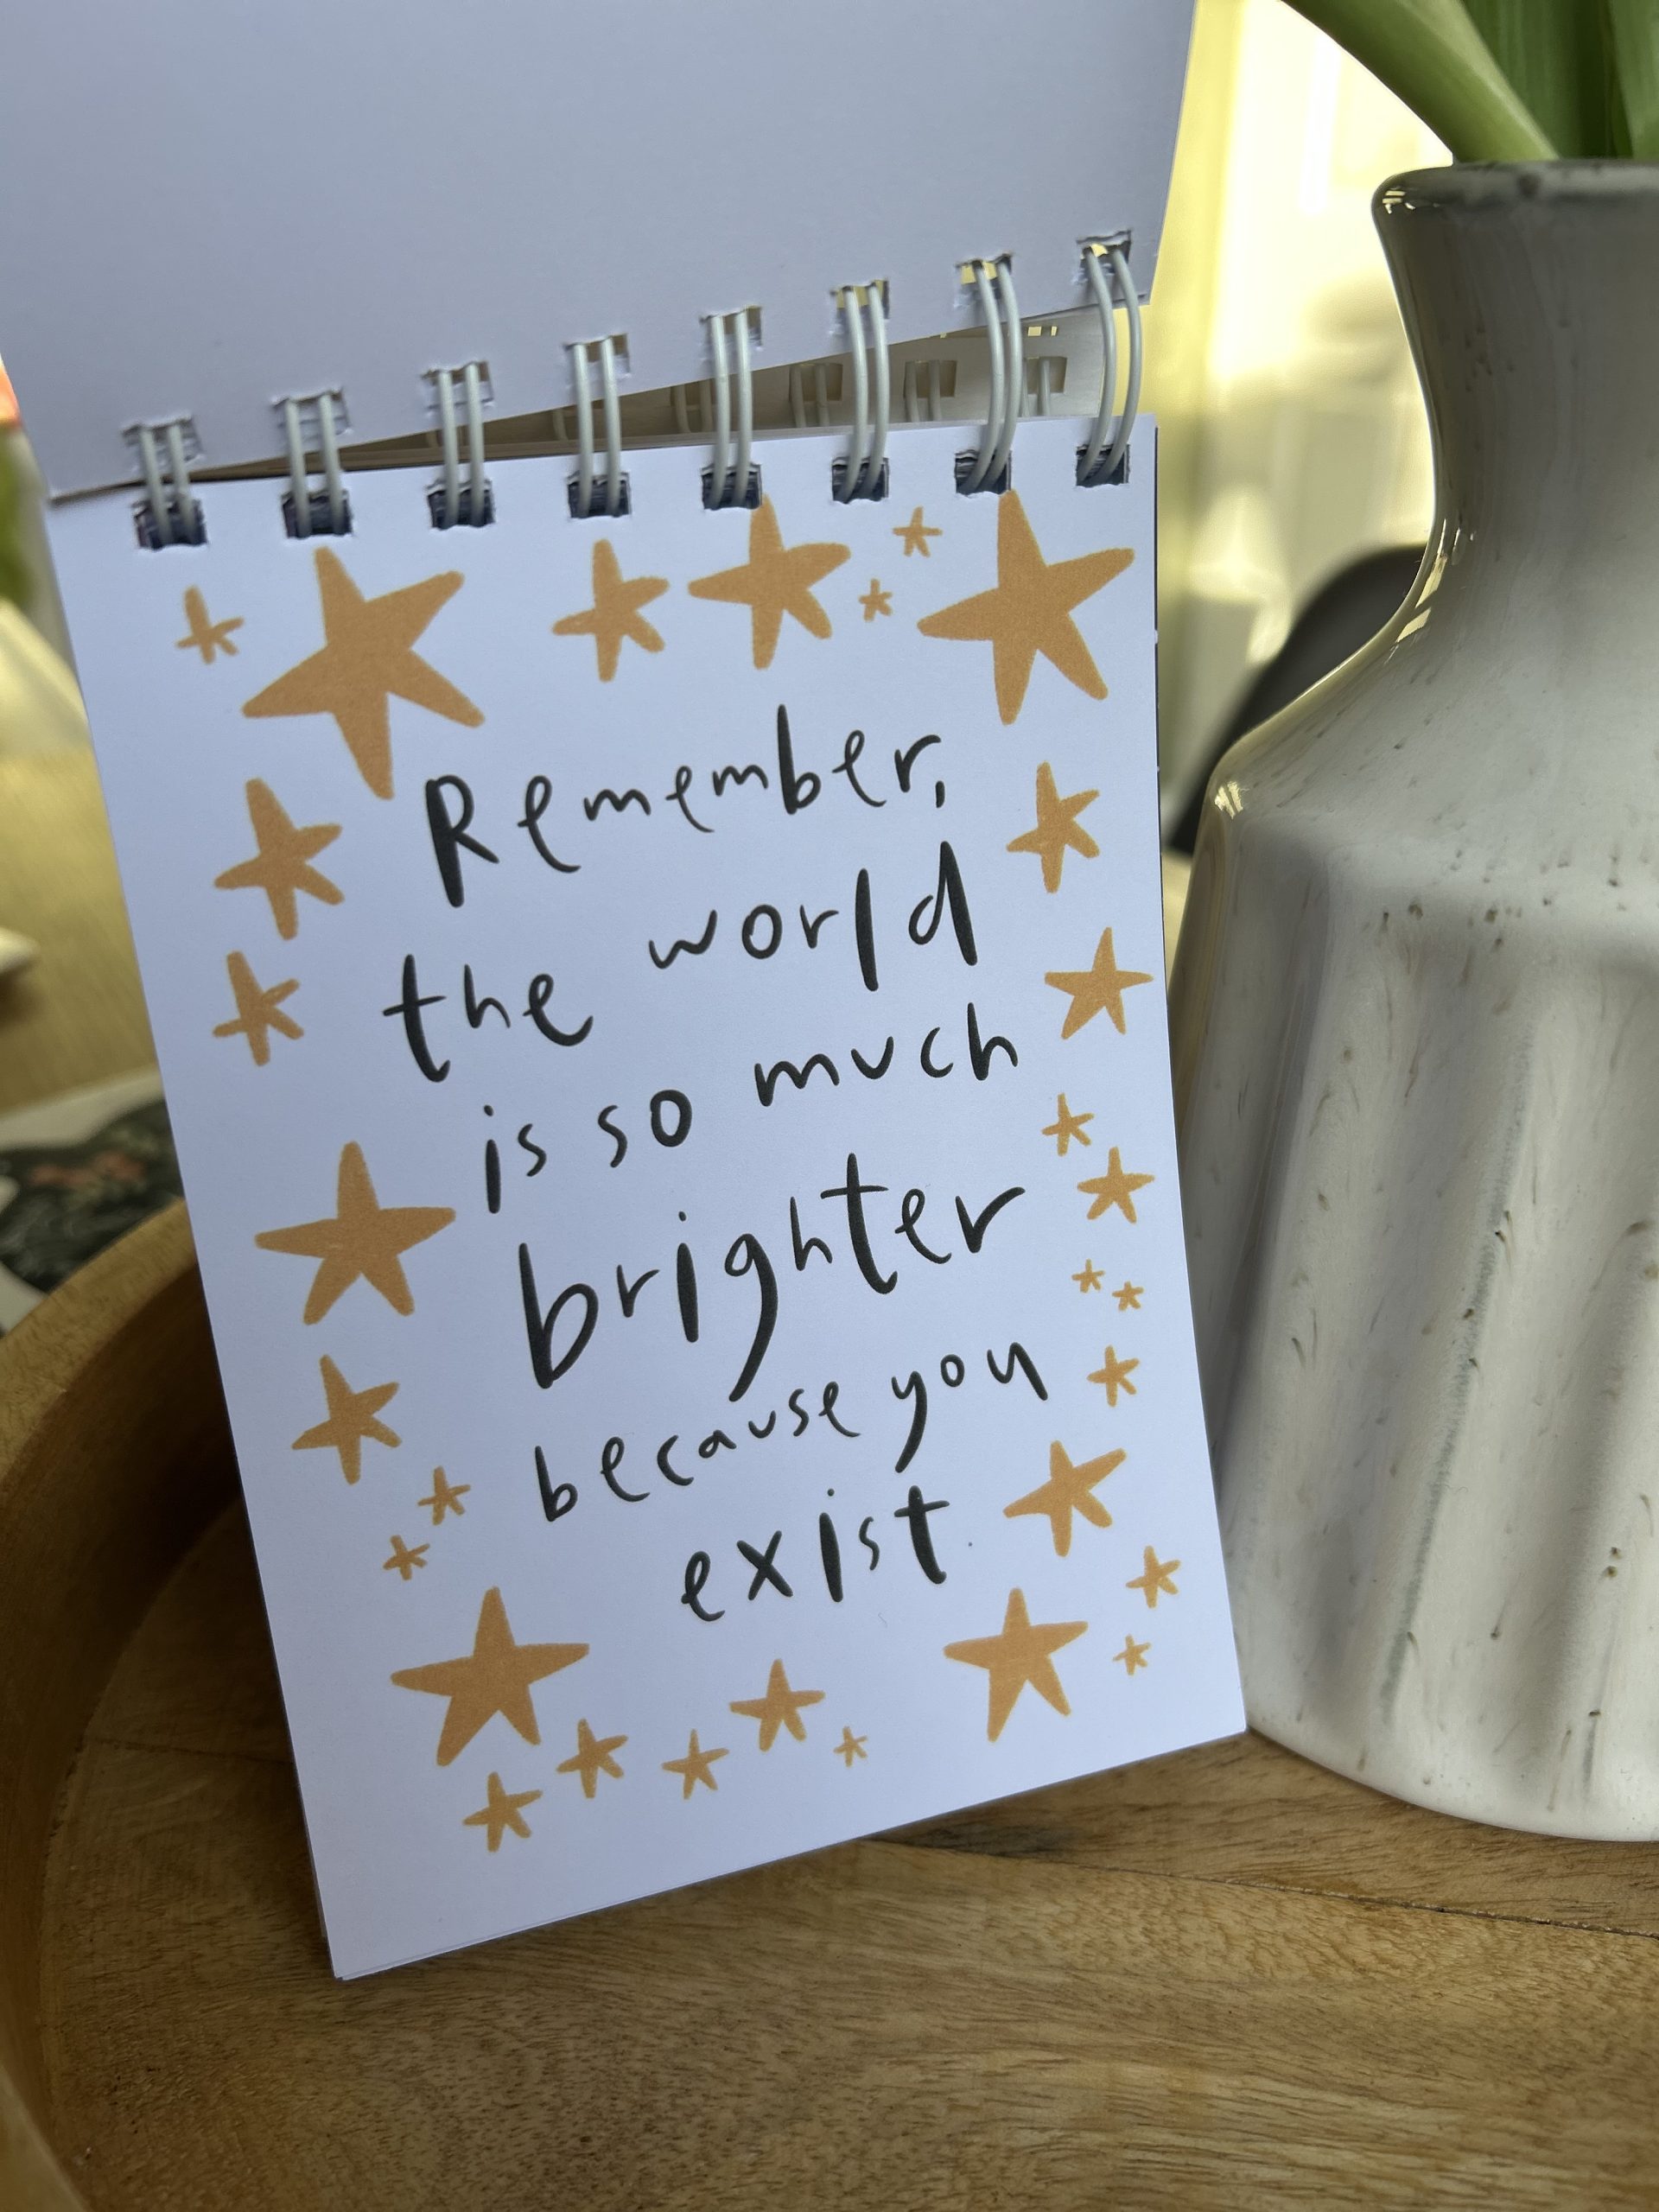 Remember,
the world
is so much
brighter
because you
exist.